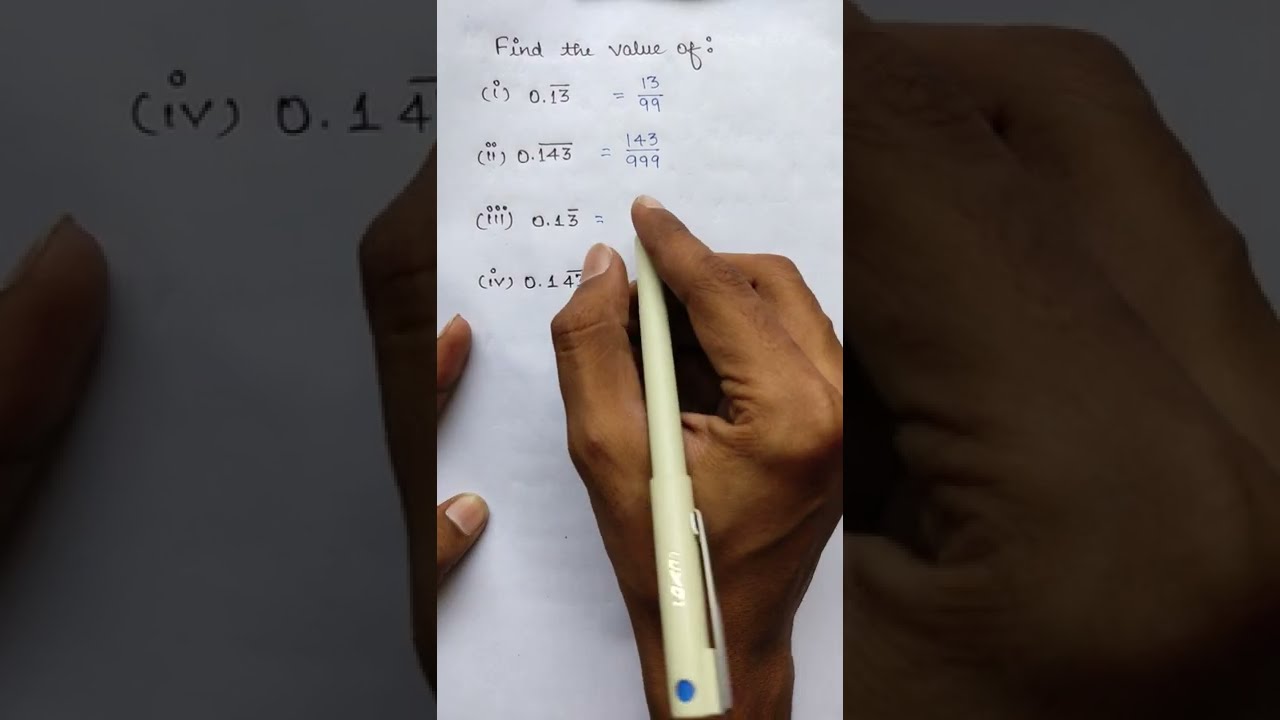 Find the value of:
(i) 0.1̅3̅ = 13/99
(ii) 0.1̅4̅3̅ = 143/999
(iii) 0.13̅ =
(iv) 0.14̅